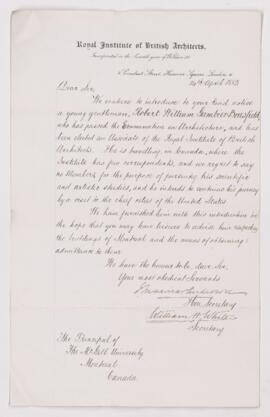 Royal Institute of British Architects.
Incorporated in the Seventh year of William IV.
9 Conduit Street, Hanover Square, London, W.
24th April 1883
Dear Sir,
We venture to introduce to your kind notice
a young gentleman, Robert William Gambier Bousfield,
who has passed the Examination in Architecture, and has
been elected an Associate of the Royal Institute of British
Architects. He is travelling in Canada, where the
Institute has few correspondents, and we regret to say
no Members, for the purpose of pursuing his scientific
and artistic studies, and he intends to continue his journey
by a visit to the chief cities of the United States.
We have furnished him with this introduction in
the hope that you may have leisure to advise him respecting
the buildings of Montreal and the means of obtaining
admittance to them.
We have the honour to be, dear Sir,
Your most obedient Servants
Hon. Secretary
William H. White
Secretary
The Principal of
The McGill University
Montreal
Canada.